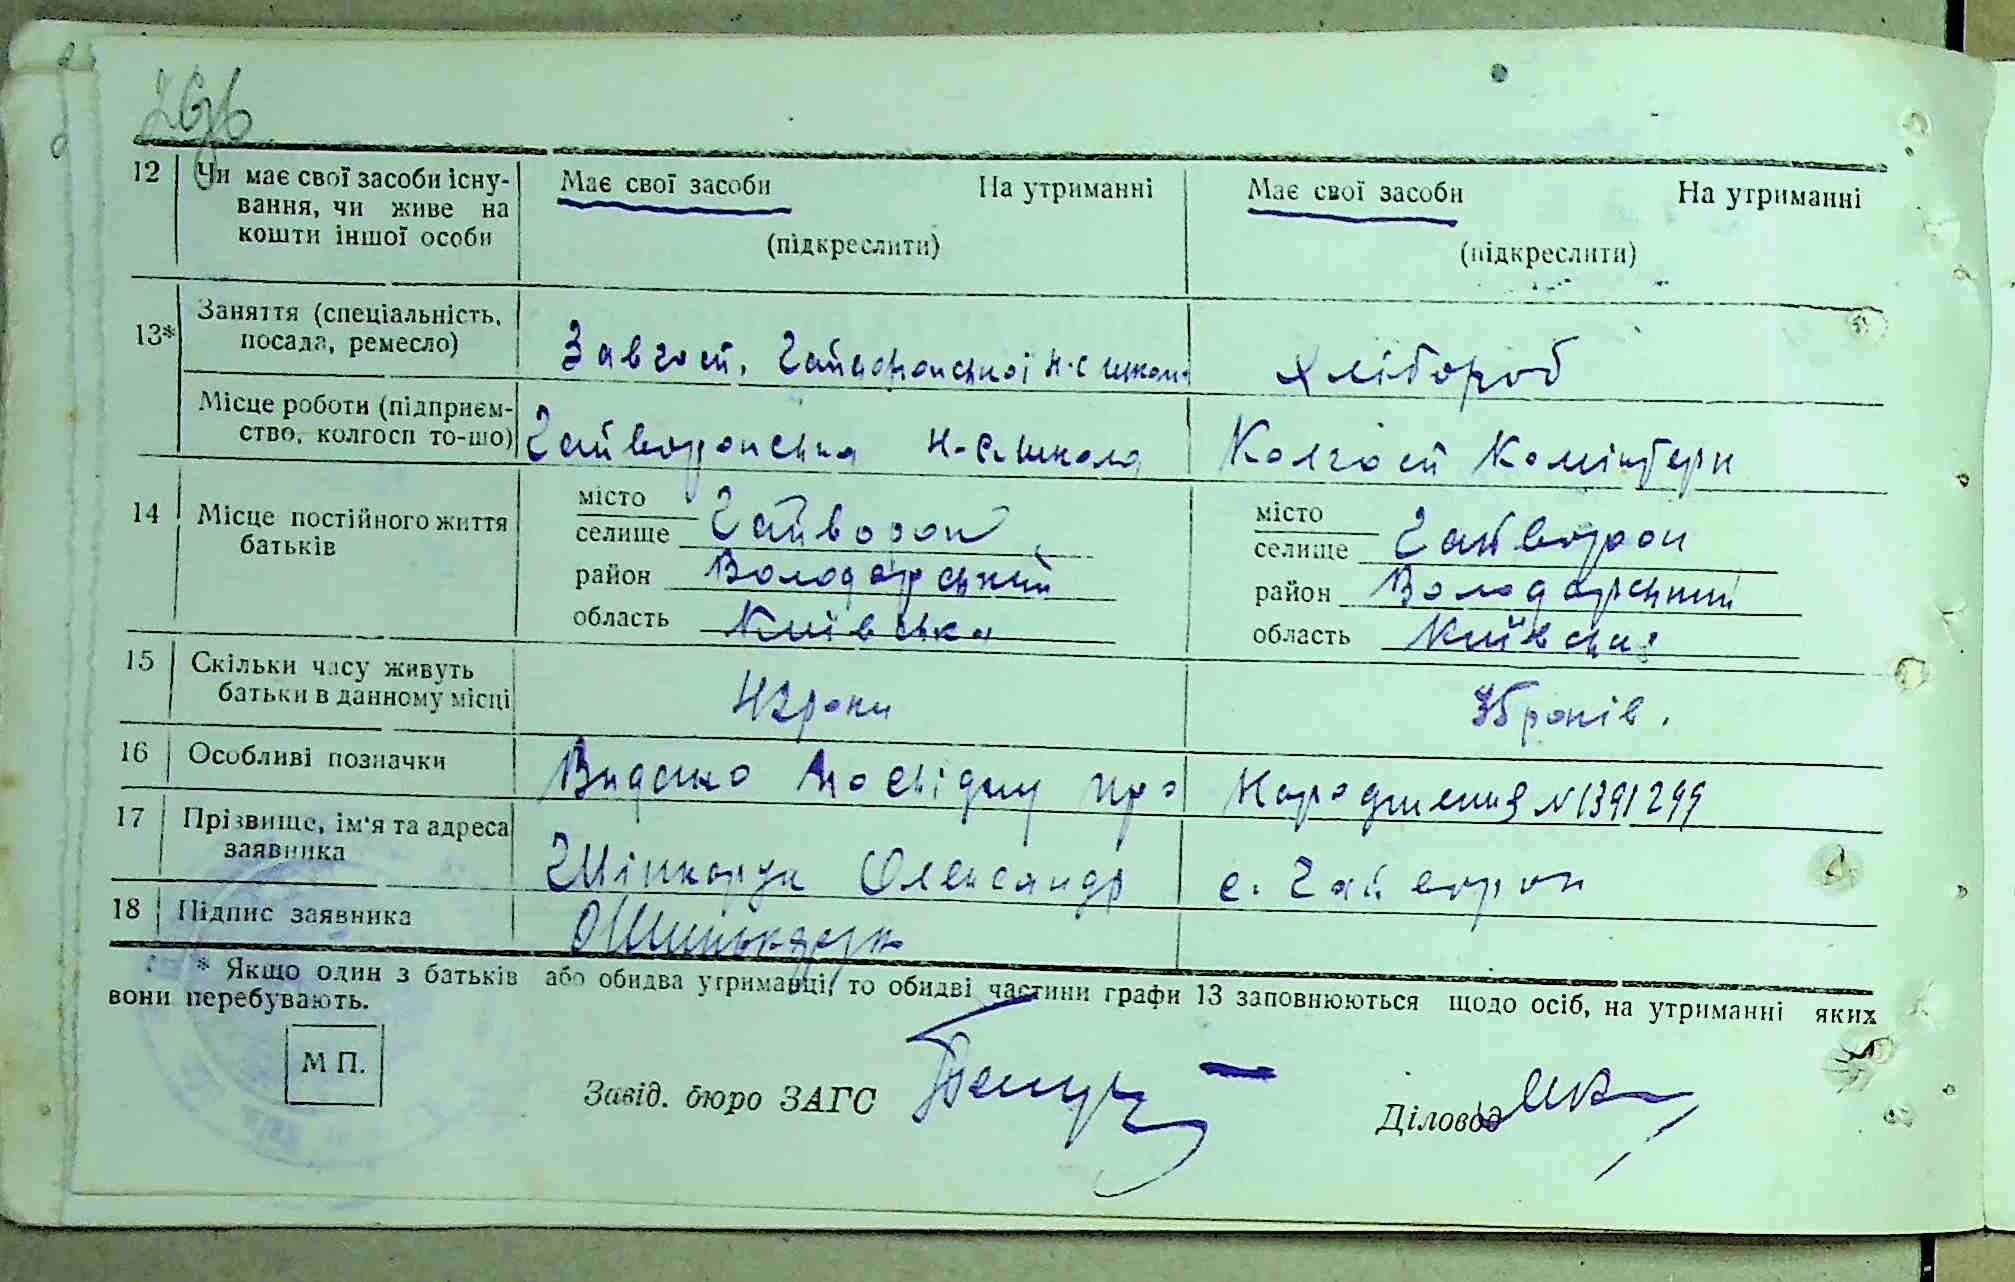 12 Чи має свої засоби існу- Має свої засоби На утриманні Має свої засоби На утриманні
вання, чи живе на
кошти іншої особи (підкреслити) (підкреслити)
13* Заняття (спеціальність,
посада, ремесло) Завгосп. Гайворонської Н.С школи Хлібороб
Місце роботи (підприєм-
ство, колгосп то-що) Гайворонська Н.С. школа Колгосп Комінтерн
14 Місце постійного життя
батьків
місто
селище Гайворон
район Володарський
область Київська
місто
селище Гайворон
район Володарський
область Київська
15 Скільки часу живуть
батьки в данному місці 42 роки 36 років.
16 Особливі позначки Видано посвідку про Народження №1391299
17 Прізвище, ім'я та адреса
заявника Олександр с. Гайворон
18 Підпис заявника
* Якщо один з батьків або обидва утриманці, то обидві частини графи 13 заповнюються щодо осіб, на утриманні яких
вони перебувають.
М П.
Завід. бюро ЗАГС Діловод